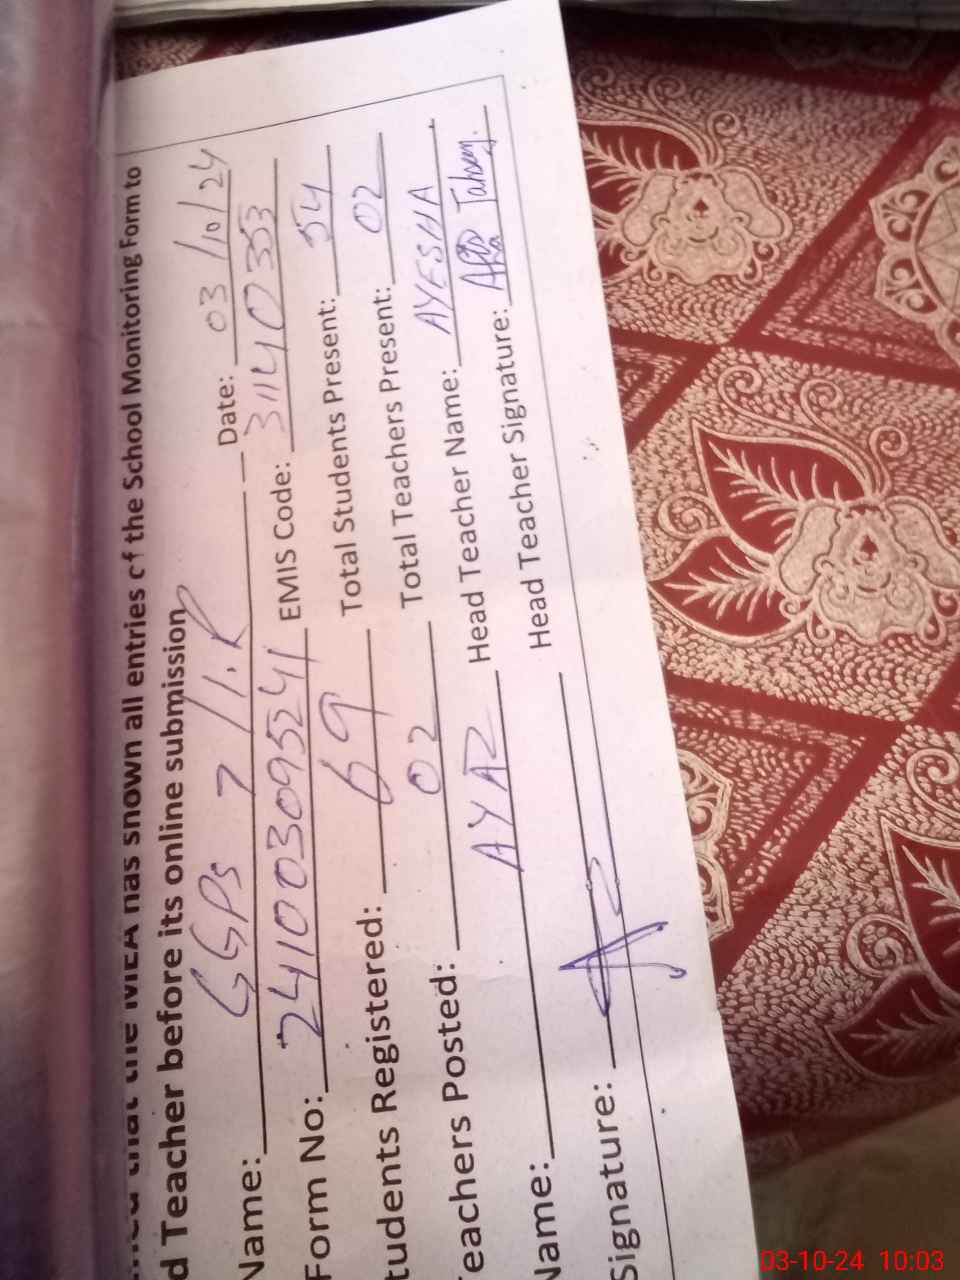 that the MEA has shown all entries of the School Monitoring Form to
d Teacher before its online submission
Name: GGPS 7/1.R Date: 03/10/24
Form No: 241003095241 EMIS Code: 31140353
tudents Registered: 69 Total Students Present: 54
eachers Posted: 02 Total Teachers Present: 02
Name: AYAZ Head Teacher Name: AYESHA
Signature: Head Teacher Signature:
03-10-24 10:03